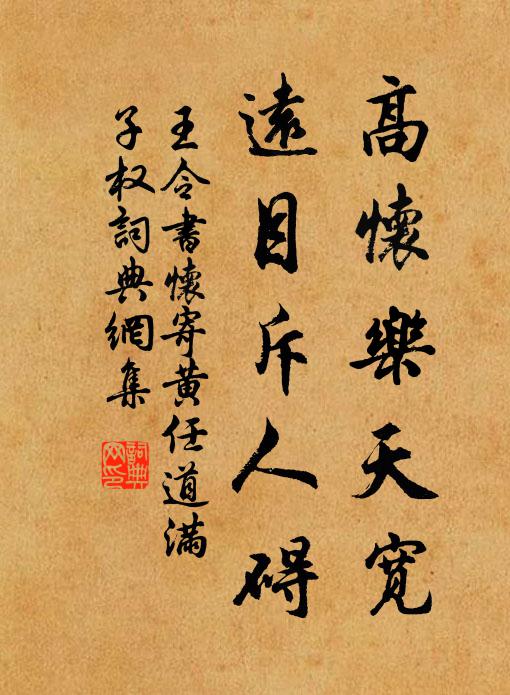 高懷樂天寬
遠目斥人碍
王令書懷寄黄任道滿
子权詞典網集
詞典网印